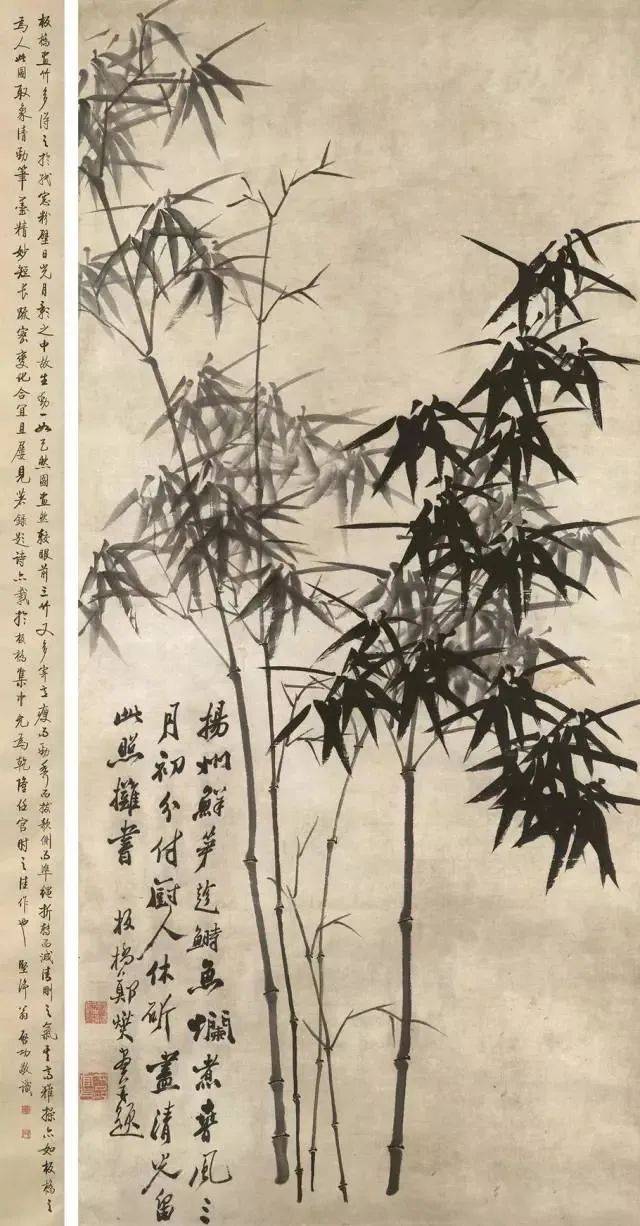 揚州鮮筍趁鰣魚爛煮春風三
月初分付廚人休斫盡清光留
此照攤書 板橋鄭燮畫并題
板橋畫竹多得之於紙窗粉壁日光月影之中故生動一如 圖畫 較眼前 竹又多 瘦而勁秀而拔欹側而準繩折轉而 清剛之氣 高雅操亦如板橋之
為人此圖取象清勁筆墨精妙短長疏密變化合宜且屢見著錄題詩亦載於板橋集中尤為乾隆任官時之佳作也 堅淨翁啟功敬識